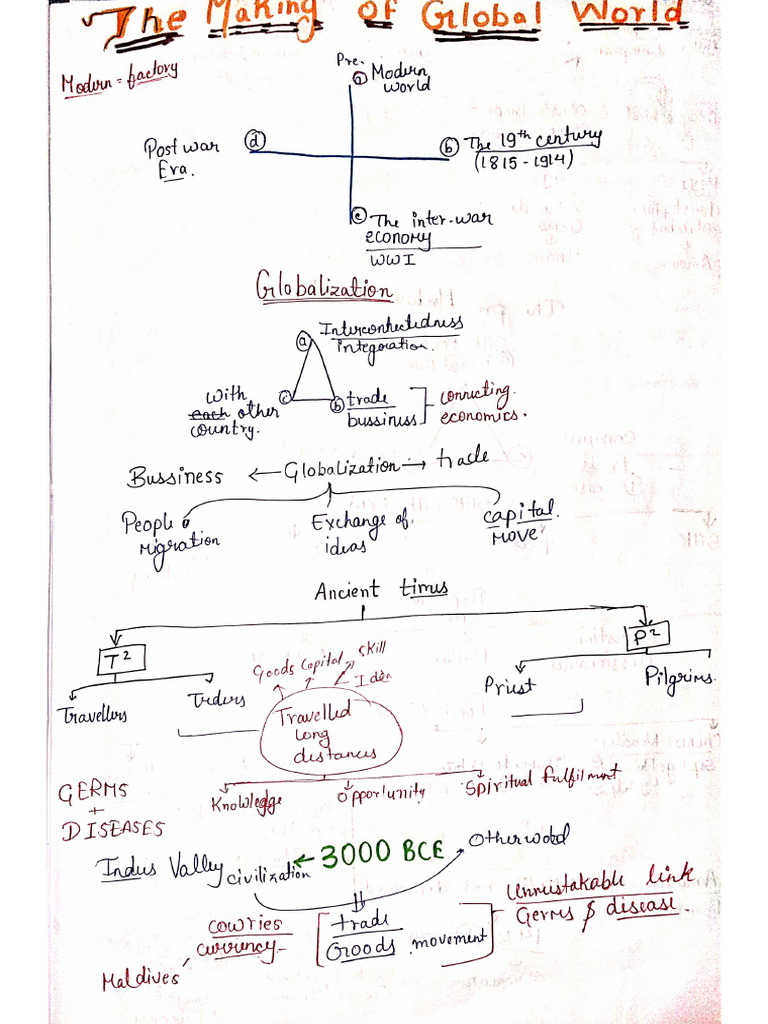 The Making Of Global World
Modern = factory
Pre.
a Modern
world
d
Post war
Era.
b The 19th century
(1815 - 1914)
c The inter-war
economy
WWI
Globalization
a Interconnectedness
integeration.
With
each other
country.
c
b trade
bussiness
connecting
economics.
Bussiness ← Globalization → trade
People
migration
Exchange of
ideas
capital
move
Ancient times
T²
P²
Travellers
Treders
Goods Capital skill
Idea
Priest
Pilgrims.
Travelled
long
distances
GERMS
+
DISEASES
Knowledge
opportunity
Spiritual fulfilment
Indus Valley civilization ← 3000 BCE
Otherwodd
cowries
currency
Maldives
trade
Goods movement
Unmistakable link
Germs & disease.